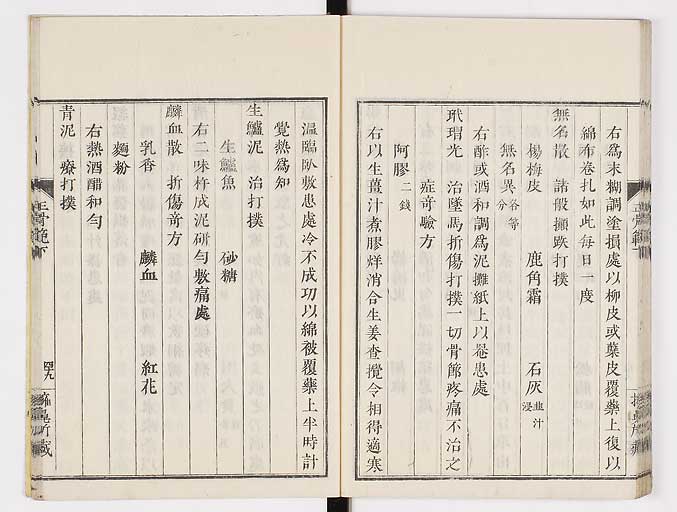 右爲末糊調塗損處以柳皮或葉皮覆藥上復以
綿布卷扎如此每日一度
無名散　諸般攧跌打撲
楊梅皮　鹿角霜　石灰韭汁浸
無名異各等分
右酢或酒和調爲泥攤紙上以卷患處
玳瑁光　治墜馬折傷打撲一切骨節疼痛不治之
症奇驗方
阿膠二錢
右以生薑汁煮膠烊消合生姜查攪令相得適寒
溫臨臥敷患處冷不成功以綿被覆藥上半時計
覺熱爲知
生鱸泥　治打撲
生鱸魚　砂糖
右二味杵成泥研勻敷痛處
麟血散　折傷奇方
乳香　麟血　紅花
麵粉
右熱酒醋和勻
青泥　療打撲
正骨範下
四十九